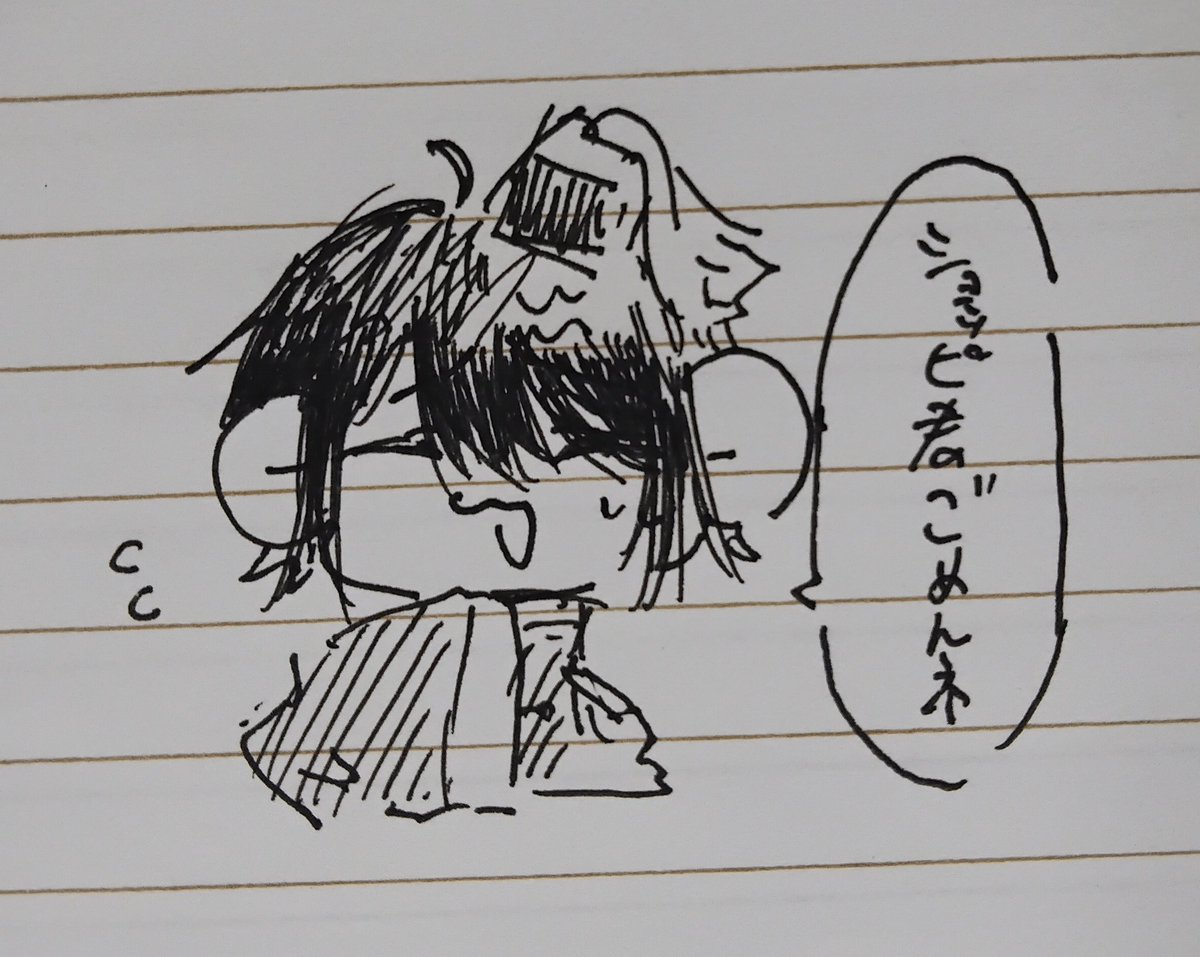 ショッピ君のごめんネ